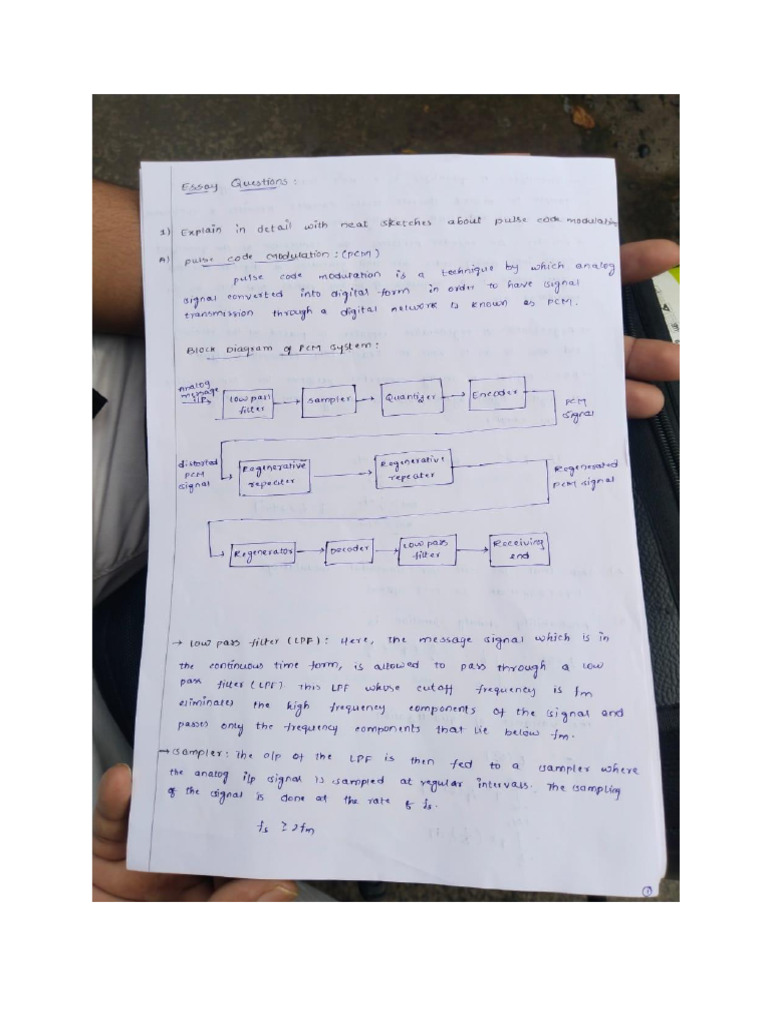 Essay Questions:
1) Explain in detail with neat sketches about pulse code modulation
A) pulse code modulation: (PCM)
pulse code modulation is a technique by which analog
signal converted into digital form in order to have signal
transmission through a digital network is known as PCM.
Block Diagram of PCM system:
Analog
message
i/p
low pass
filter
sampler
Quantizer
Encoder
PCM
signal
distorted
PCM
signal
Regenerative
repeater
Regenerative
repeater
Regenerated
PCM signal
Regenerator
Decoder
low pass
filter
Receiving
end
→ low pass filter (LPF): Here, the message signal which is in
the continuous time form, is allowed to pass through a low
pass filter (LPF). This LPF whose cutoff frequency is fm
eliminates the high frequency components of the signal and
passes only the frequency components that lie below fm.
→ sampler: The o/p of the LPF is then fed to a sampler where
the analog i/p signal is sampled at regular intervals. The sampling
of the signal is done at the rate of fs.
fs ≥ 2fm
1